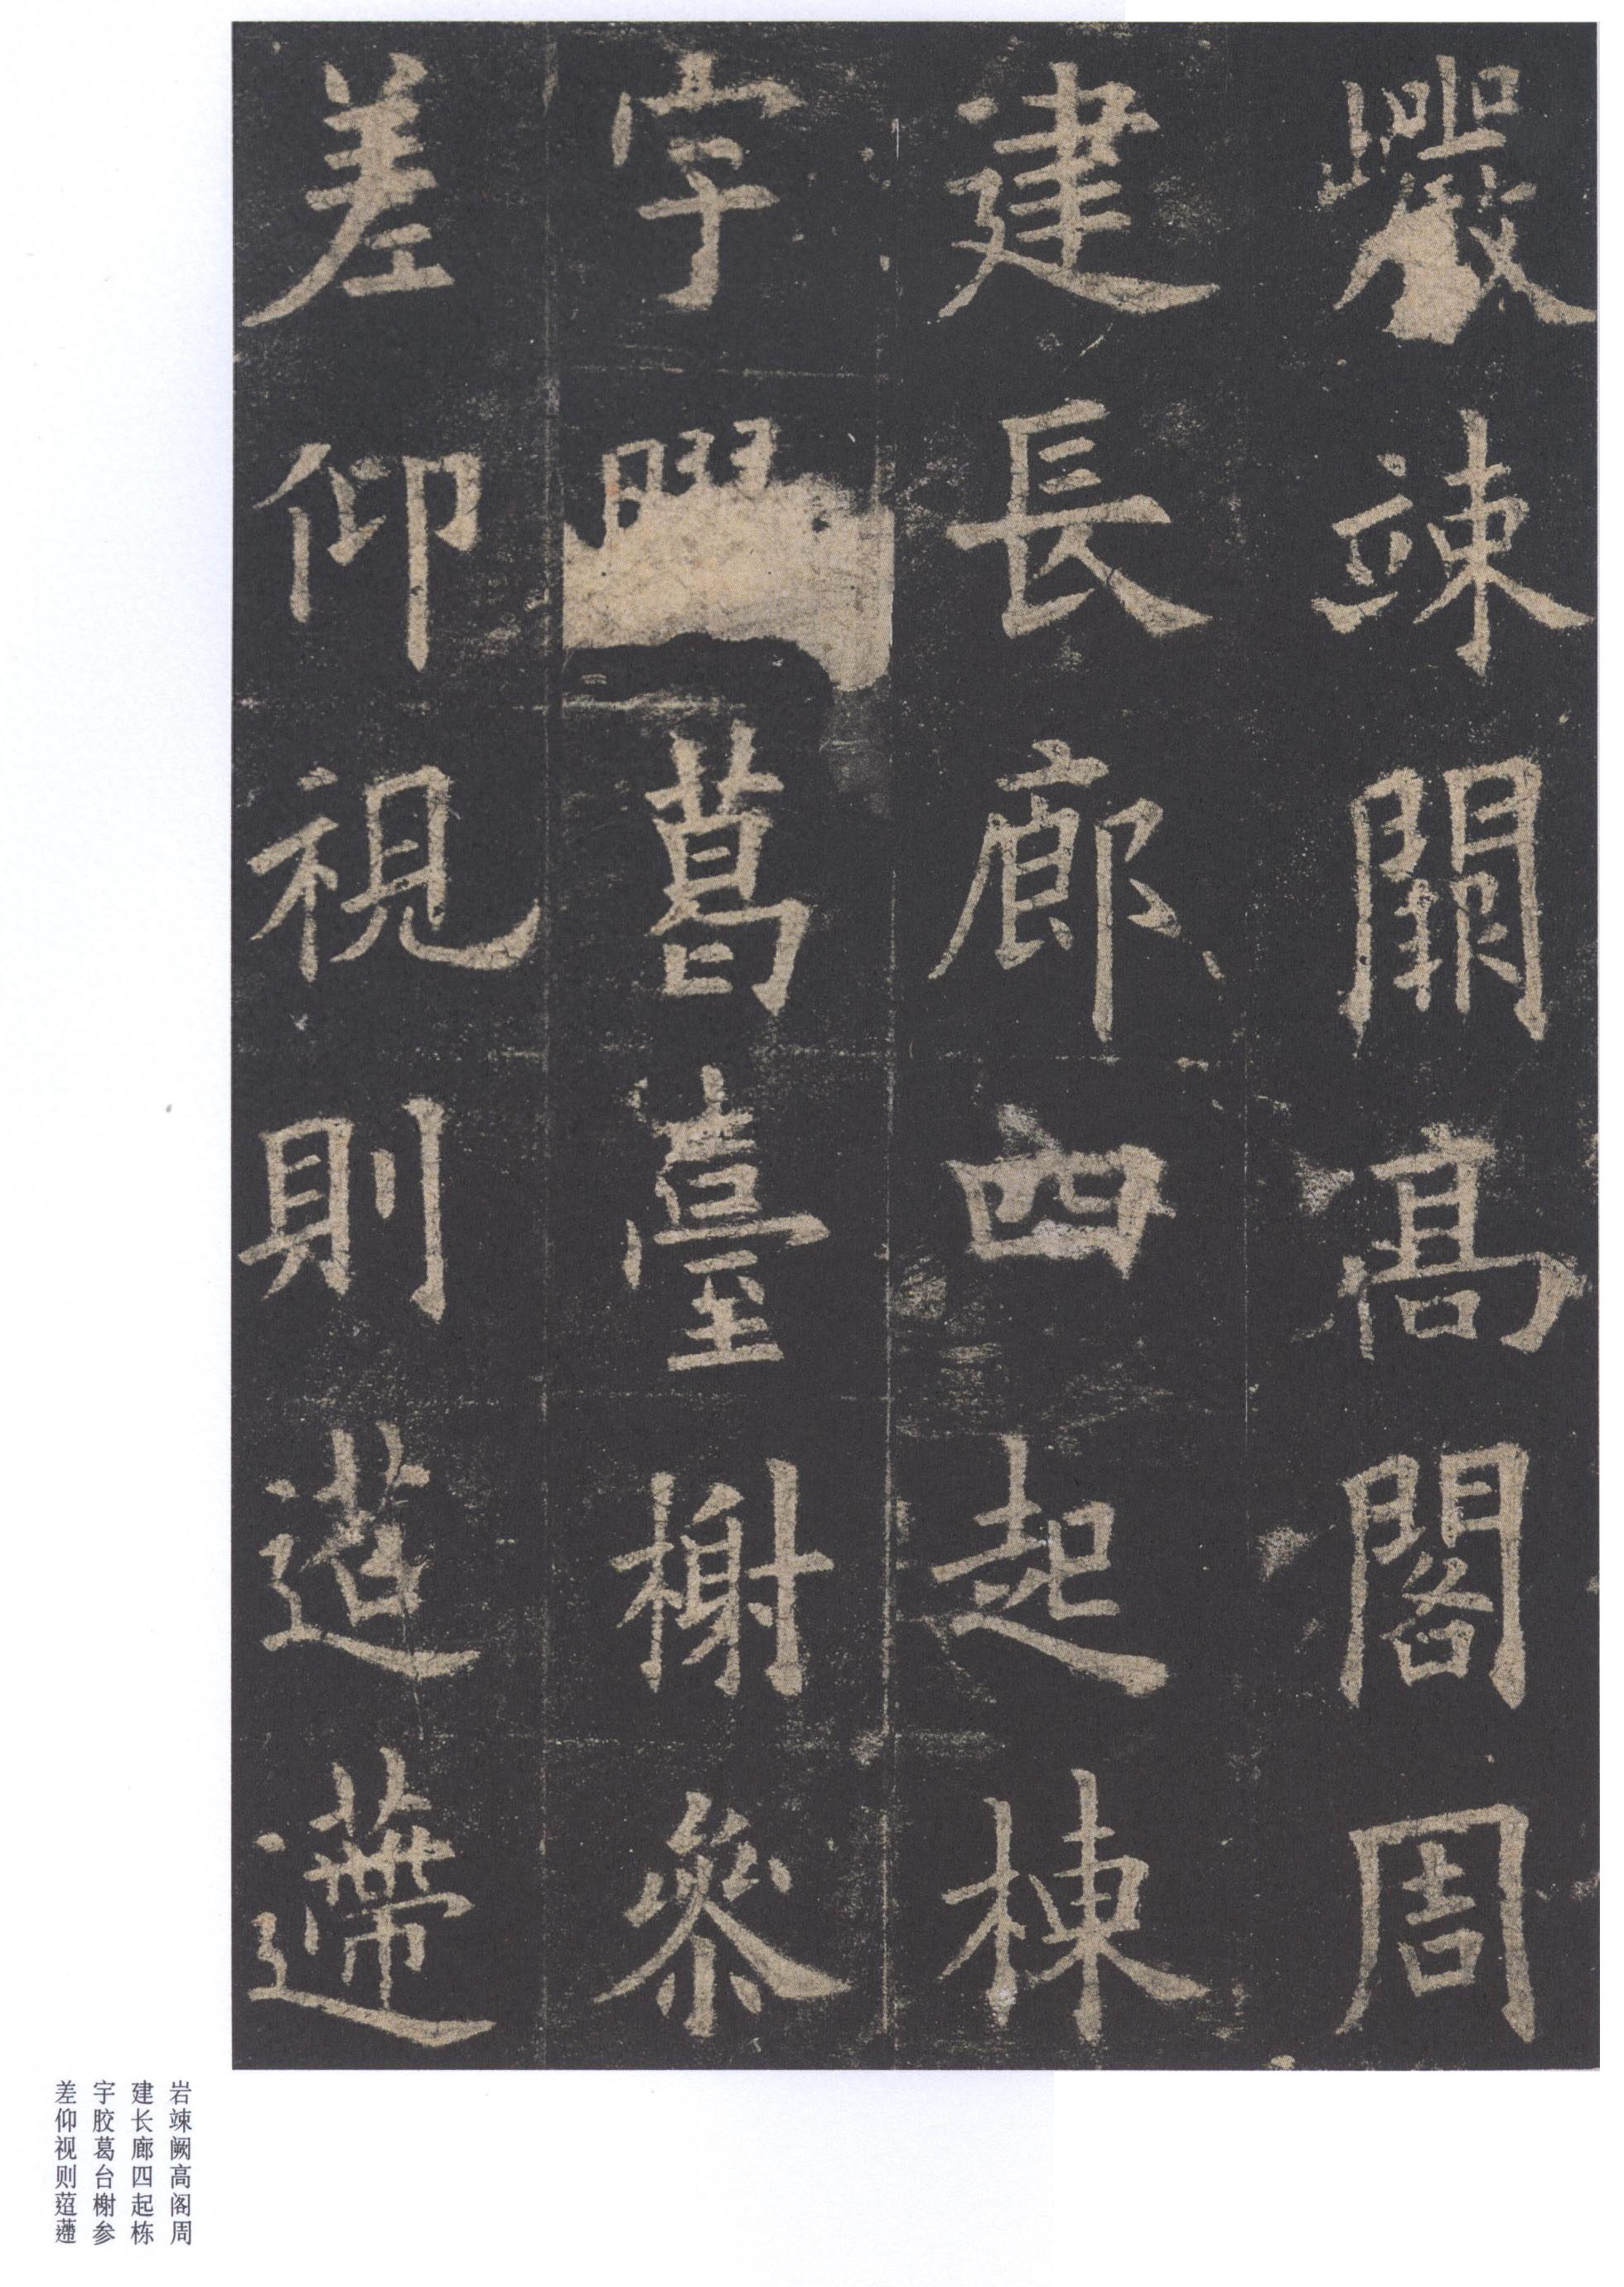 巖竦闕高閣周
建長廊四起棟
宇葛臺榭參
差仰視則迢遰
岩竦阙高阁周
建长廊四起栋
宇胶葛台榭参
差仰视则